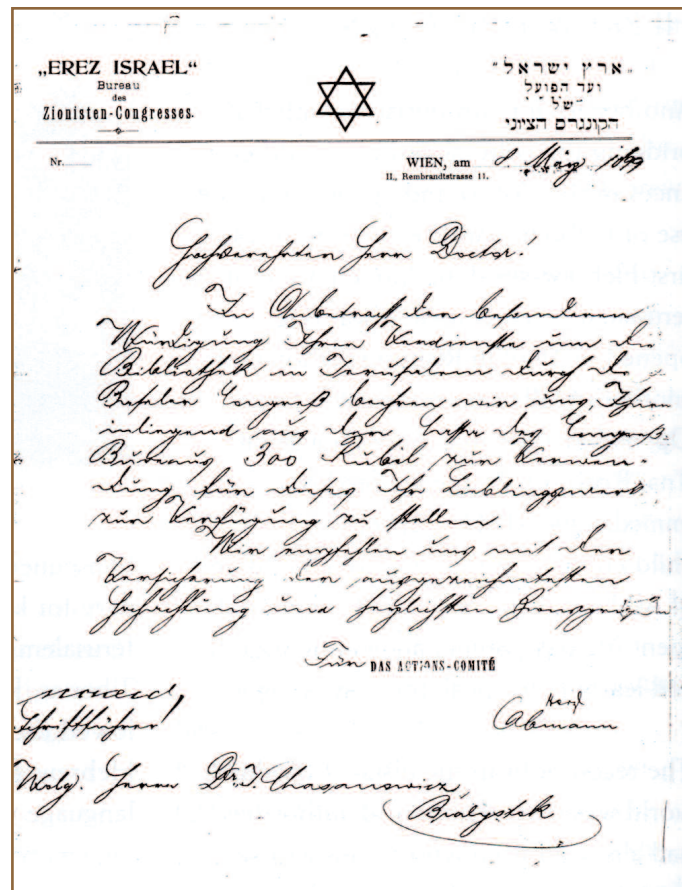 „EREZ ISRAEL“
Bureau
des
Zionisten-Congresses.
„ארץ ישראל“
ועד הפועל
של
הקונגרס הציוני
Nr.
WIEN, am 8. März 1899
II., Rembrandtstrasse 11.
Hochverehrten Herrn Doctor!
In Anbetracht der besonderen
Würdigung Ihrer Verdienste um die
Bibliothek in Jerusalem durch de
Baseler Congreß beehren wir uns, Ihnen
inliegend aus der Cassa des Congreß-
Bureaus 300 Rubel zur Verwen-
dung für dieses Ihr Lieblingswerk
zur Verfügung zu stellen.
Wir empfehlen uns mit der
Versicherung der ausgezeichnetesten
Hochachtung und herzlichsten Zionsgruß
Für DAS ACTIONS-COMITÉ
Schriftführer
Obmann
Wolg. Herrn Dr. J. Chasanowicz,
Bialystok
Jerusalem
The
languag